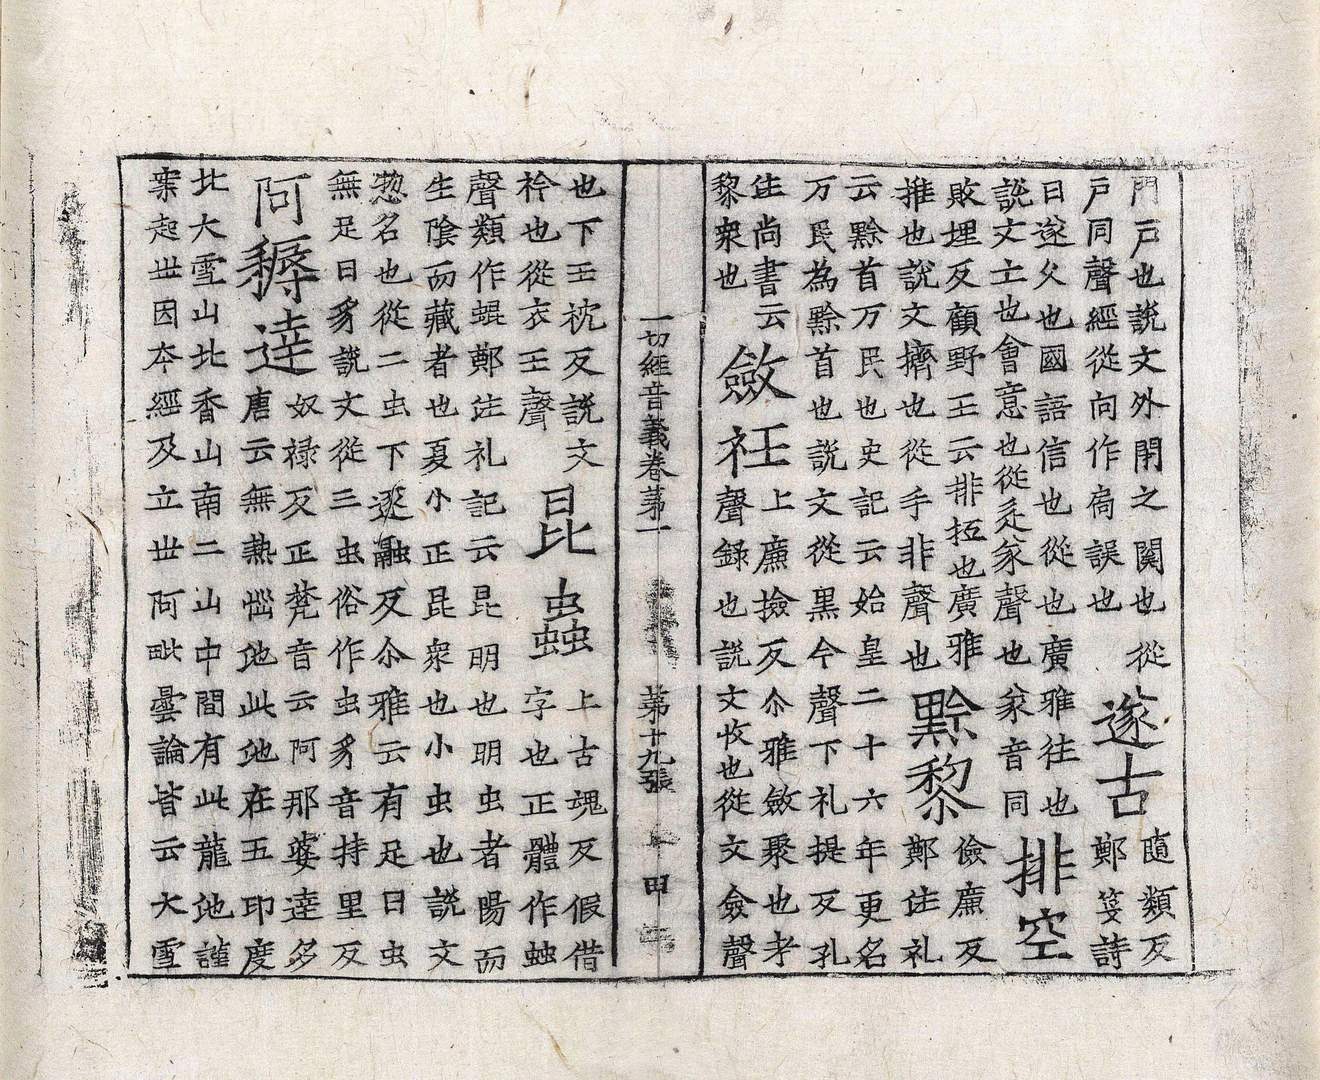 門戶也說文外閇之關也從
戶同聲經從向作扃誤也
遂古
隨類反
鄭箋詩
曰遂久也國語信也從也廣雅往也
說文亡也會意也從辵㒸聲也㒸音同
排空
敗埋反顧野王云排抵也廣雅
推也說文擠也從手非聲也
黔黎
儉廉反
鄭注礼
云黔首万民也史記云始皇二十六年更名
万民為黔首也說文從黑今聲下礼提反孔
注尚書云
黎衆也
斂衽
上廉撿反尒雅斂聚也考
聲録也說文收也從攵僉聲
一切經音義卷苐一 苐十九張 甲
也下壬枕反說文
衿也從衣壬聲
昆蟲
上古魂反假借
字也正體作䖵
聲類作蜫鄭注礼記云昆明也明虫者陽而
生陰而藏者也夏小正昆衆也小虫也說文
惣名也從二虫下逐融反尒雅云有足曰虫
無足曰豸說文從三虫俗作虫豸音持里反
阿耨達
奴禄反正梵音云阿那婆達多
唐云無熱惱池此池在五印度
北大雪山北香山南二山中間有此龍池謹
案起世因本經及立世阿毗曇論皆云大雪